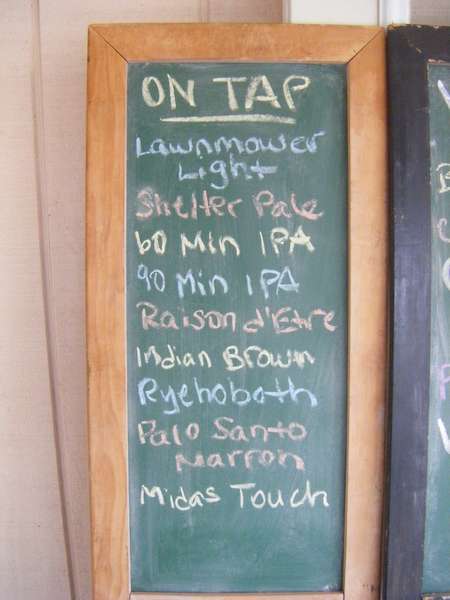 ON TAP
Lawnmower
Light
Shelter Pale
60 Min IPA
90 Min IPA
Raison d'Etre
Indian Brown
Ryehoboth
Palo Santo
Marron
Midas Touch